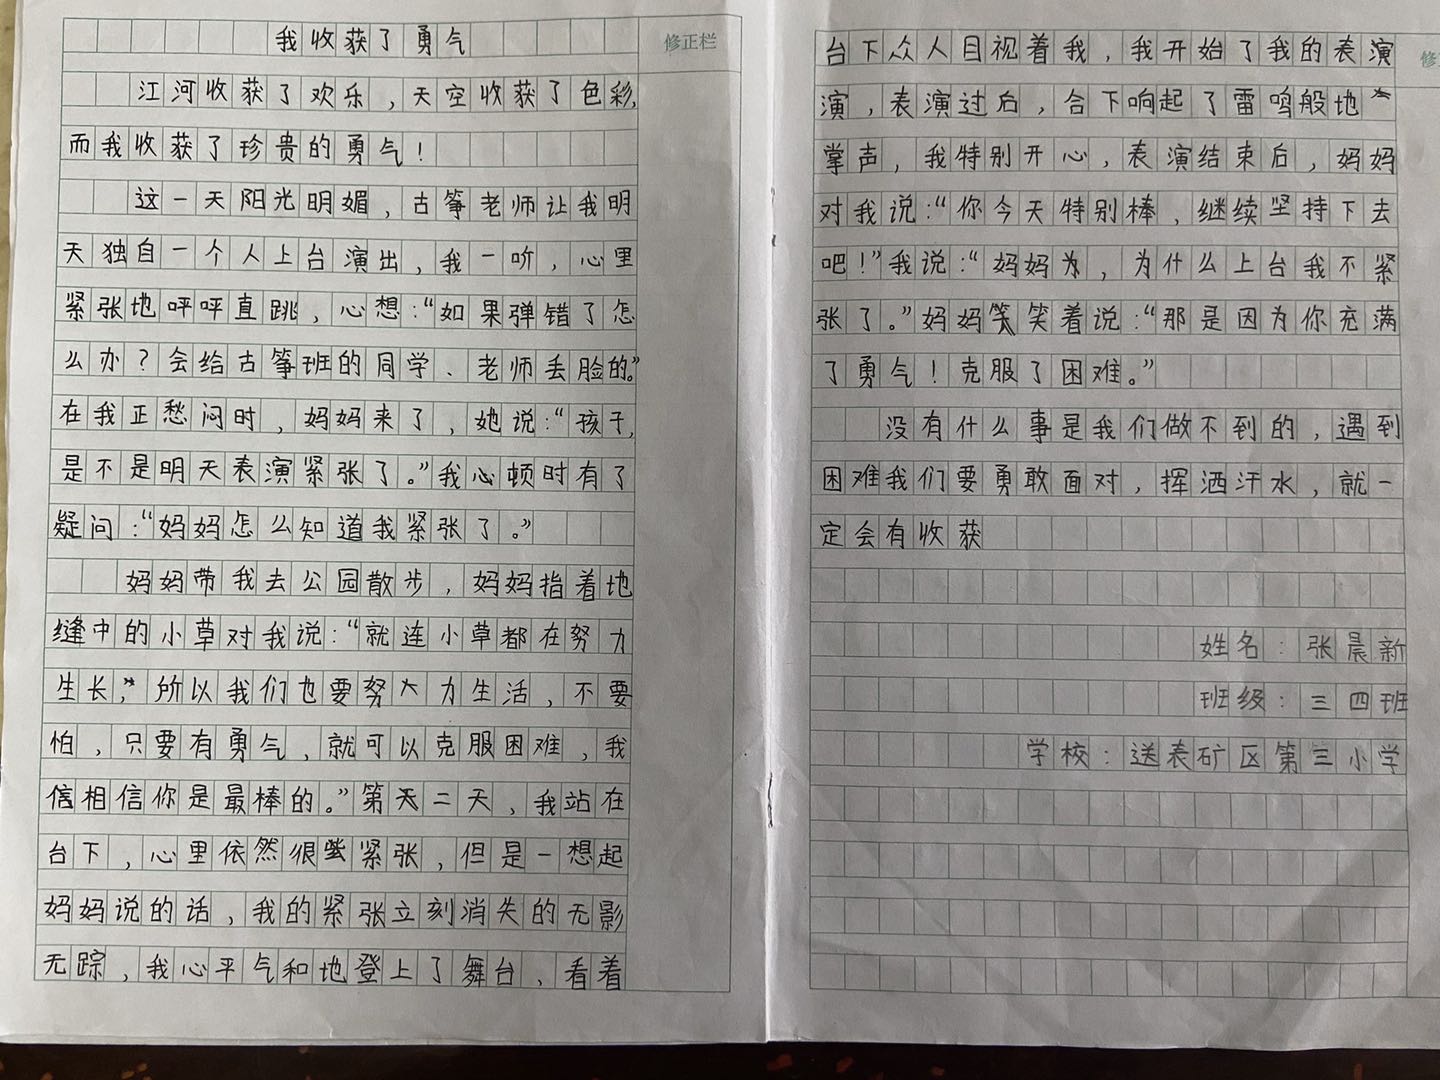 我收获了勇气
修正栏
江河收获了欢乐，天空收获了色彩，
而我收获了珍贵的勇气！
这一天阳光明媚，古筝老师让我明
天独自一个人上台演出，我一听，心里
紧张地呯呯直跳，心想：“如果弹错了怎
么办？会给古筝班的同学、老师丢脸的。”
在我正愁闷时，妈妈来了，她说：“孩子，
是不是明天表演紧张了。”我心顿时有了
疑问：“妈妈怎么知道我紧张了。”
妈妈带我去公园散步，妈妈指着地
缝中的小草对我说：“就连小草都在努力
生长，所以我们也要努力生活，不要
怕，只要有勇气，就可以克服困难，我
信相信你是最棒的。”第二天，我站在
台下，心里依然很紧张，但是一想起
妈妈说的话，我的紧张立刻消失的无影
无踪，我心平气和地登上了舞台、看着
台下众人目视着我，我开始了我的表演
演，表演过后，台下响起了雷鸣般地
掌声，我特别开心，表演结束后，妈妈
对我说：“你今天特别棒，继续坚持下去
吧！”我说：“妈妈为，为什么上台我不紧
张了。”妈妈笑笑着说：“那是因为你充满
了勇气！克服了困难。”
没有什么事是我们做不到的，遇到
困难我们要勇敢面对，挥洒汗水，就一
定会有收获
姓名：张晨新
班级：三四班
学校：送表矿区第三小学